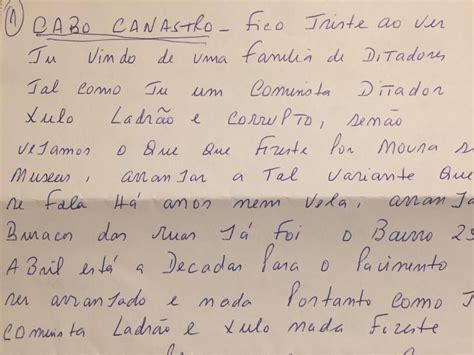 1 CABO CANASTRO - Fico Triste ao ver
Tu Vindo de uma Familia de Ditadores
Tal como Tu um Comunista Ditador
Xulo Ladrão e corrupto, senão
vejamos o Que Que Fizeste Por Moura s
Museus, arranjar a Tal Variante Que
se Fala Há anos nem Vela, arranja
Buracos das ruas Já Foi o Bairro 25
ABril está a Decadas Para o Pavimento
ser arranjado e nada Portanto como T
comunista Ladrão e xulo nada Fizeste